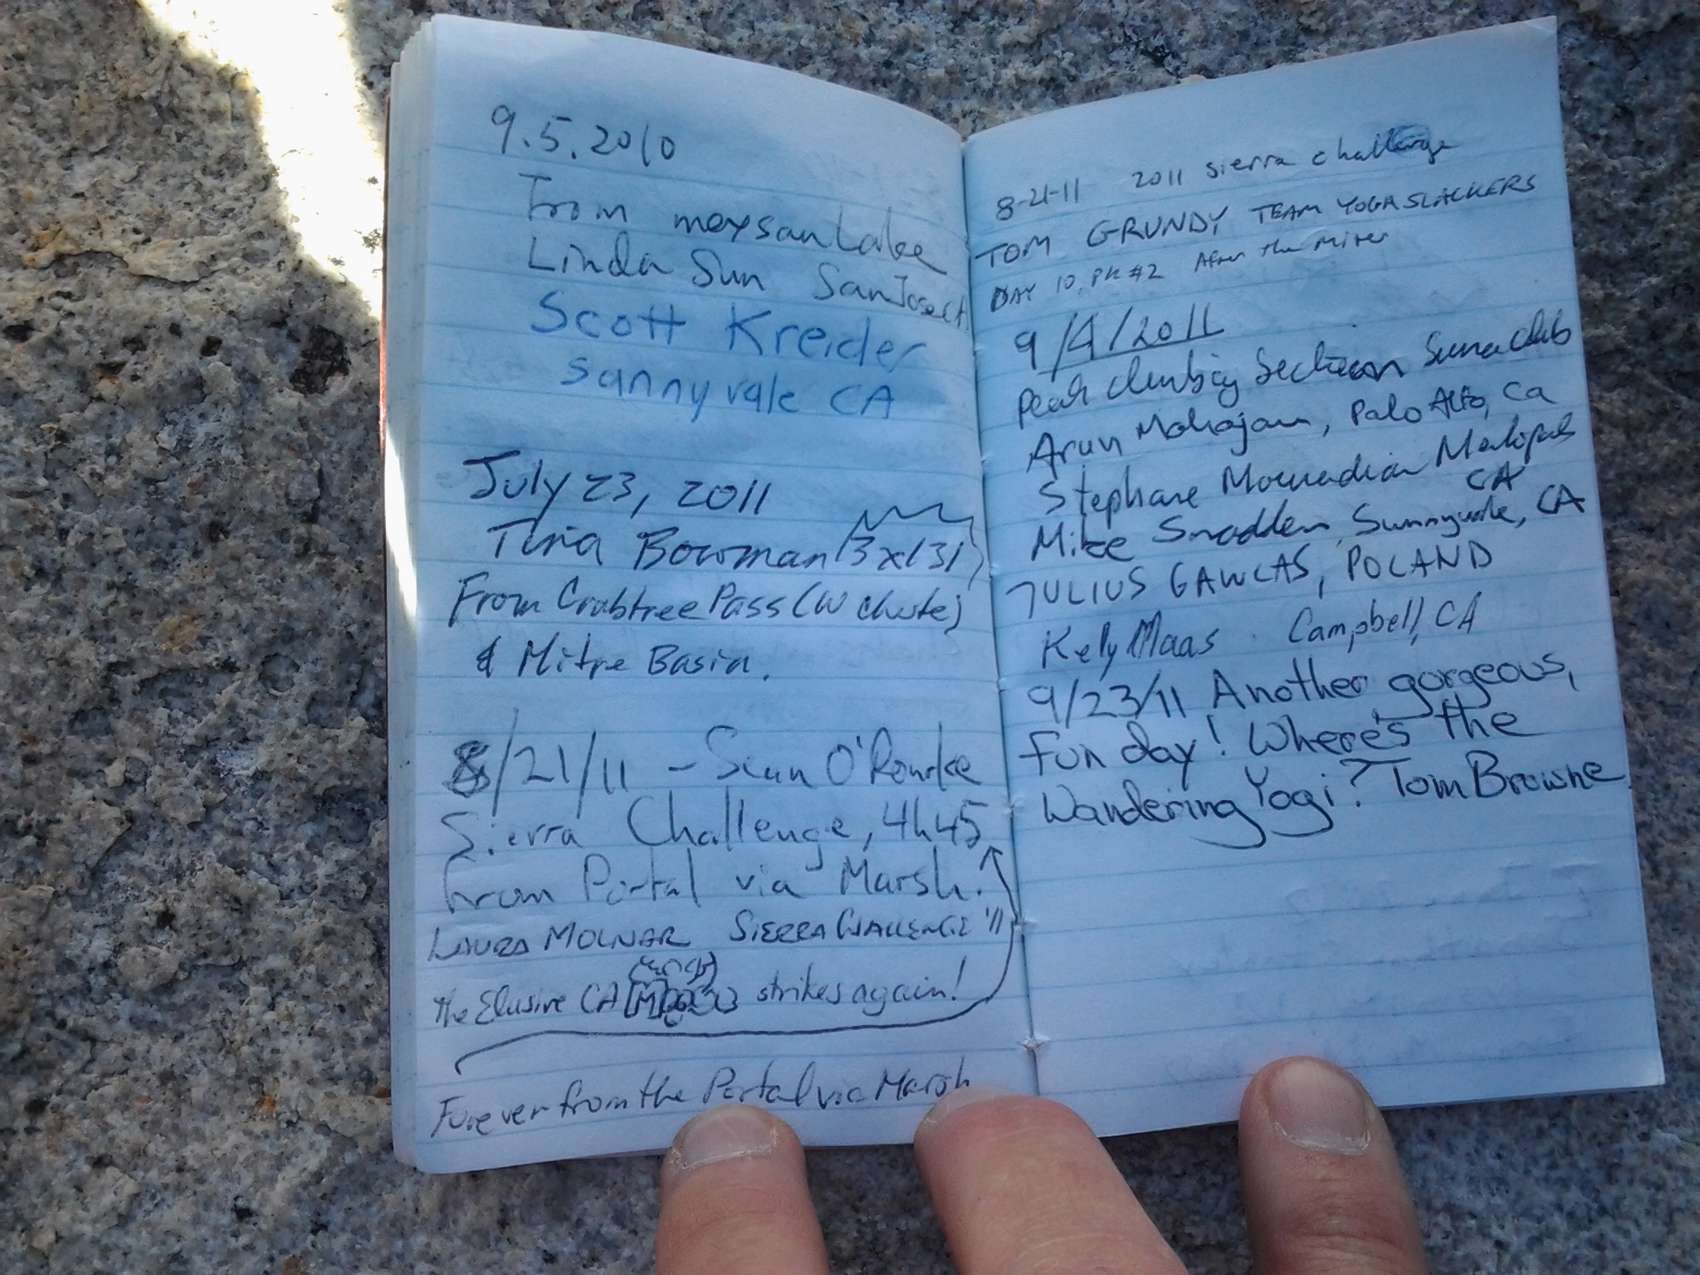 9.5.2010
From meysan Lake
Linda Sun San Jose CA
Scott Kreider
Sunnyvale CA
July 23, 2011
Tina Bowman (3x(3))
From Crabtree Pass (W chute)
& Mitre Basin.
8/21/11 - Sean O'Rourke
Sierra Challenge, 4h45
from Portal via Marsh.
LAURA MOLNAR SIERRA CHALLENGE '11
the Elusive CA strikes again!
Forever from the Portal via Marsh
8-21-11 2011 sierra challenge
TOM GRUNDY TEAM YOGASLACKERS
DAY 10, PK #2 After the Miter
9/4/2011
Peak climbing Section Sierra Club
Arun Mahajan, Palo Alto, Ca
Stephane Mouradian
CA
Mike Snadden, Sunnyvale, CA
JULIUS GAWLAS, POLAND
Kelly Maas Campbell, CA
9/23/11 Another gorgeous,
fun day! Where's the
Wandering Yogi? Tom Browne